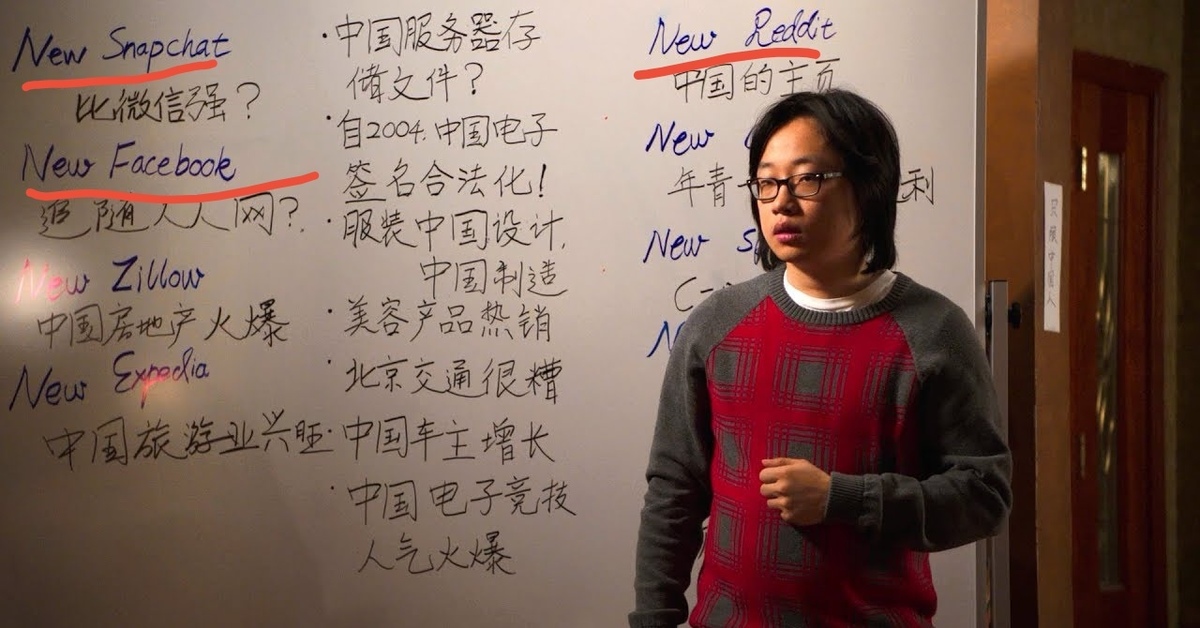 New Snapchat
比微信强？
New Facebook
追随人人网？
New Zillow
中国房地产火爆
New Expedia
中国旅游业兴旺
·中国服务器存
储文件？
·自2004.中国电子
签名合法化！
·服装中国设计，
中国制造
·美容产品热销
·北京交通很糟
·中国车主增长
·中国电子竞技
人气火爆
New Reddit
中国的主页
New
年青 利
New
C-